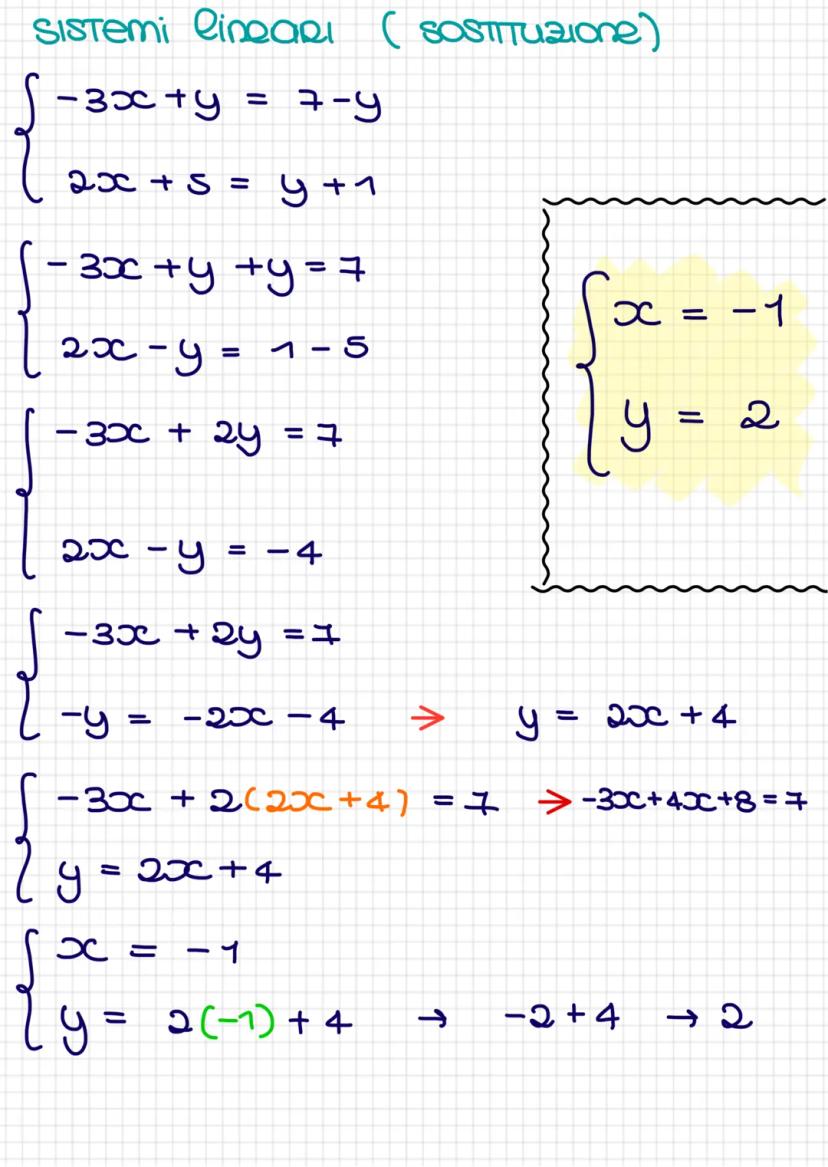 SISTEMI lineari ( SOSTITUZIONE)
-3x+y = 7-y
2x+5 = y+1
-3x+y+y=7
2x-y = 1-5
x = -1
y = 2
-3x + 2y = 7
2x - y = -4
-3x + 2y = 7
-y = -2x - 4 → y = 2x + 4
-3x + 2(2x+4) = 7 → -3x+4x+8=7
y = 2x+4
x = -1
y = 2(-1) + 4 → -2+4 → 2